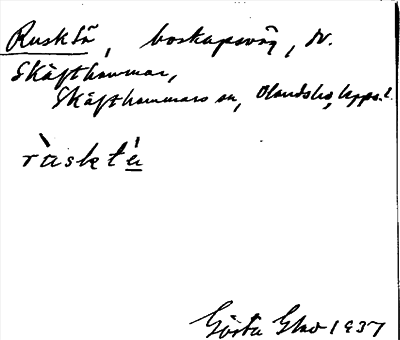 Rusktå, boskapsväg, N.
Skäfthammar,
Skäfthammars sn, Olandshd, Upps. l.
ruskt
Gösta 1937